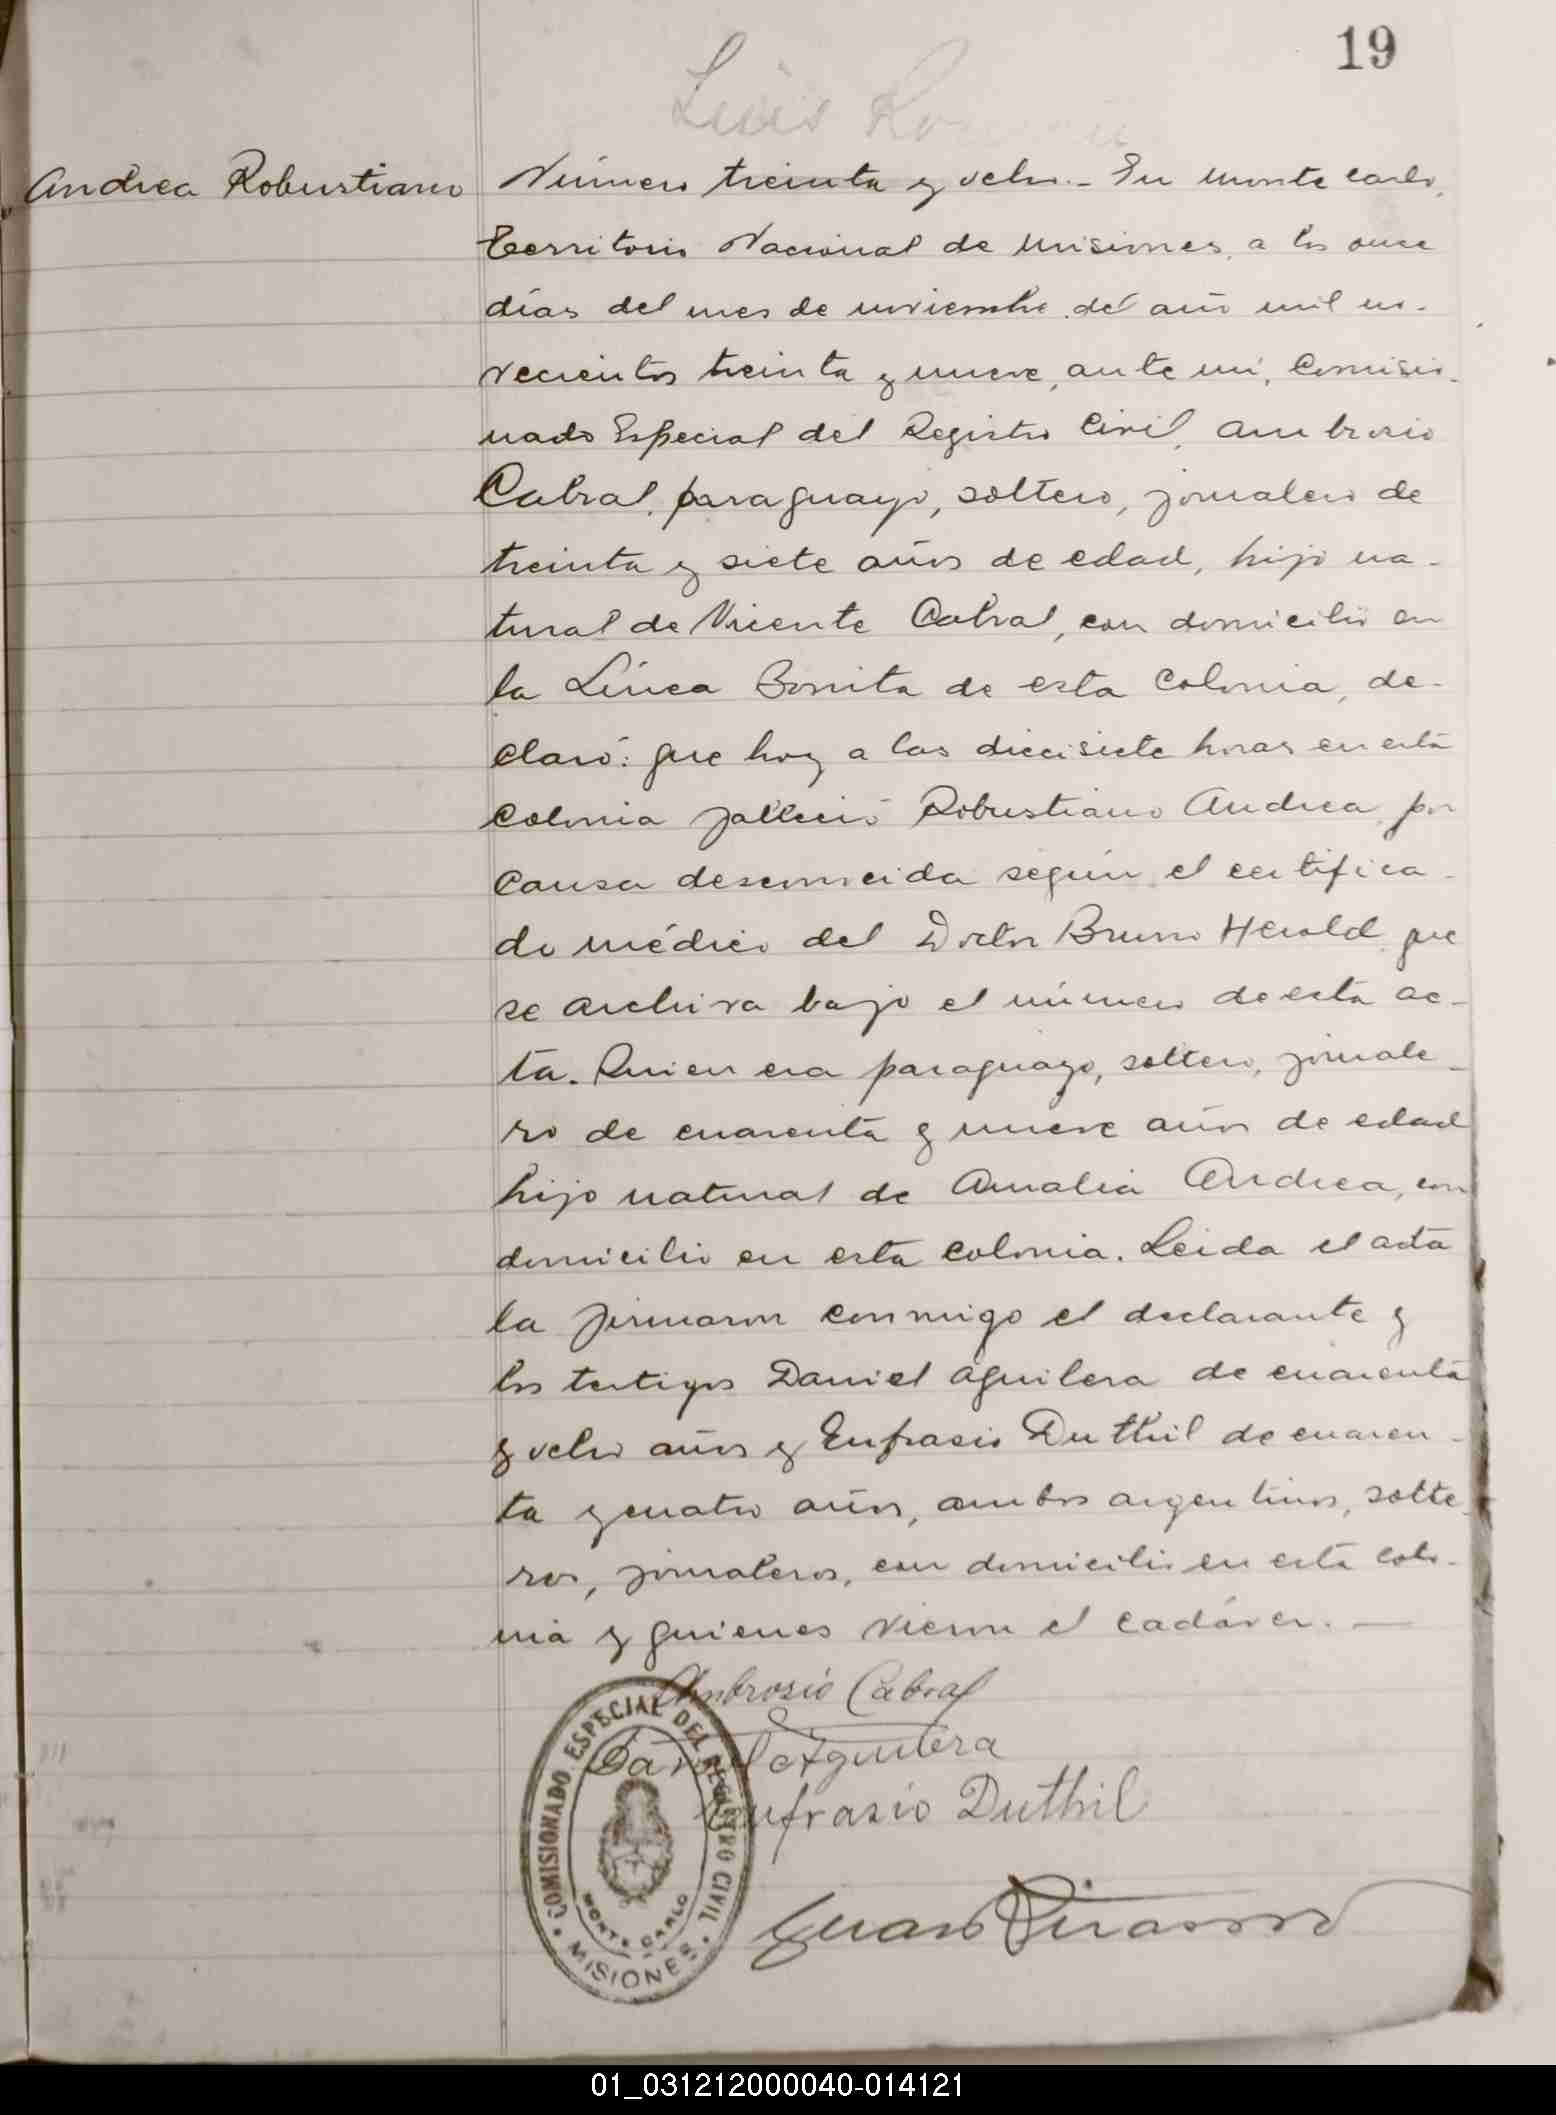 19
Luis
Andrea Robustiano
Número treinta y ocho.- En Monte Carlo,
Territorio Nacional de Misiones, a los once
días del mes de noviembre del año mil no-
vecientos treinta y nueve, ante mí, Comisio-
nado Especial del Registro Civil, Ambrosio
Cabral, paraguayo, soltero, jornalero de
treinta y siete años de edad, hijo na-
tural de Vicente Cabral, con domicilio en
la Línea Bonita de esta Colonia, de-
claró: que hoy a las diecisiete horas en esta
Colonia falleció Robustiano Andrea por
causa desconocida según el certifica-
do médico del Doctor Bruno Herold que
se archiva bajo el número de esta ac-
ta. Quien era paraguayo, soltero, jornale-
ro de cuarenta y nueve años de edad
hijo natural de Amalia Andrea, con
domicilio en esta colonia. Leida el acta
la firmaron conmigo el declarante y
los testigos Daniel Aguilera de cuarenta
y ocho años y Eufrasio Duthil de cuaren-
ta y cuatro años, ambos argentinos, solte-
ros, jornaleros, con domicilio en esta colo-
nia y quienes vieron el cadáver.—
Ambrosio Cabral
Daniel Aguilera
Eufrasio Duthil
COMISIONADO ESPECIAL DEL REGISTRO CIVIL
MONTE CARLO
MISIONES
01_031212000040-014121